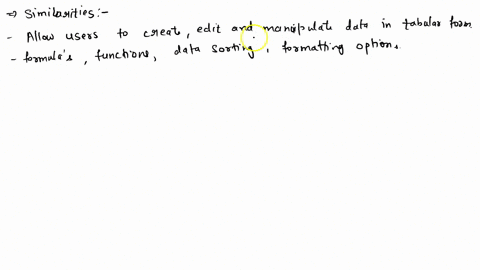 ⇒ Similarities:-
- Allow users to create, edit and manipulate data in tabular form
- formula's, functions, data sorting, formatting options.